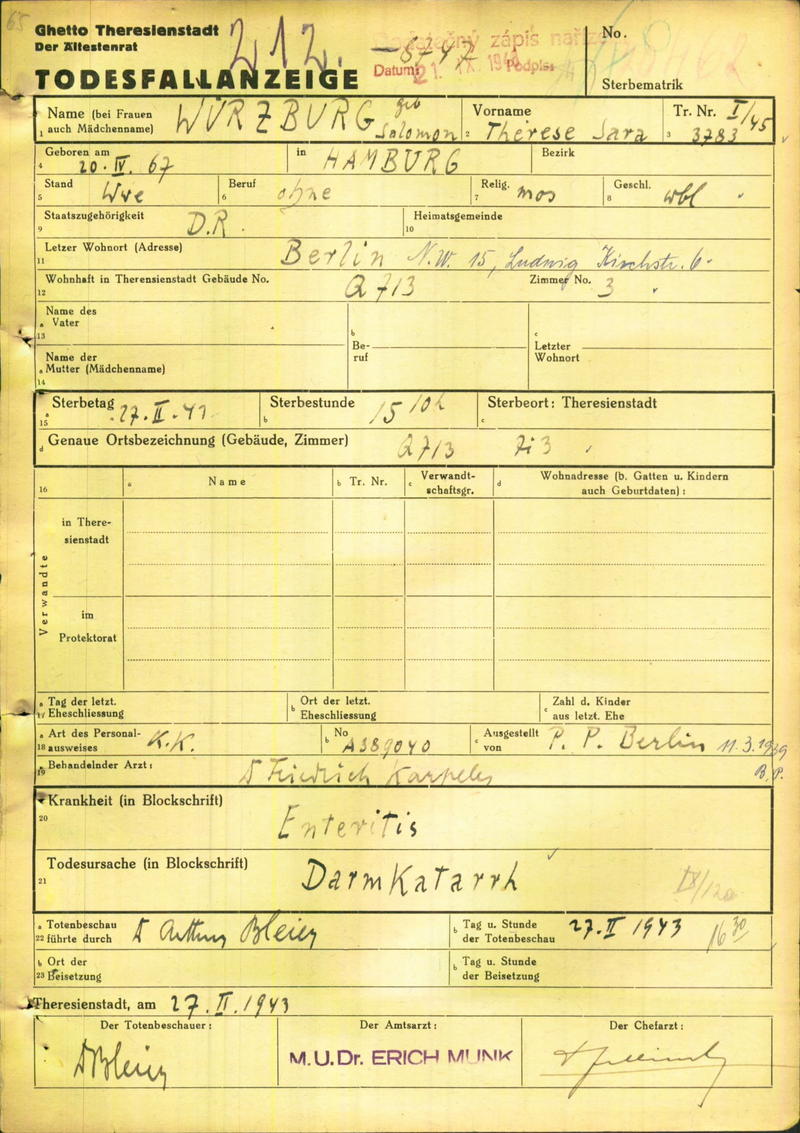 65
Ghetto Theresienstadt
Der Ältestenrat
TODESFALLANZEIGE
212.
zápis
Datum:
Podpis:
No.
Sterbematrik
Name (bei Frauen
1 auch Mädchenname)
WÜRZBURG geb Salomon
Vorname
2 Therese Sara
Tr. Nr. I/45
3 3783
Geboren am
4 20. IV. 67
in HAMBURG
Bezirk
Stand
5 Wve
Beruf
6 ohne
Relig.
7 mos
Geschl.
8 wbl
Staatszugehörigkeit
9 D.R.
Heimatsgemeinde
10
Letzer Wohnort (Adresse)
11 Berlin N.W. 15, Ludwig Kirchstr. 6
Wohnhaft in Theresienstadt Gebäude No.
12 Q 713
Zimmer No. 3
Name des
a Vater
13
b
Be-
ruf
c
Letzter
Wohnort
Name der
a Mutter (Mädchenname)
14
Sterbetag
a
15 27. II. 43
Sterbestunde
b 15 10h
Sterbeort: Theresienstadt
c
d Genaue Ortsbezeichnung (Gebäude, Zimmer) Q 713 Zi 3
16
a Name
b Tr. Nr.
c Verwandt-
schaftsgr.
d Wohnadresse (b. Gatten u. Kindern
auch Geburtdaten):
Verwandte
in There-
sienstadt
im
Protektorat
a Tag der letzt.
17 Eheschliessung
b Ort der letzt.
Eheschliessung
c Zahl d. Kinder
aus letzt. Ehe
a Art des Personal-
18 ausweises K.K.
b No A389040
c Ausgestellt
von P. P. Berlin 11.3.1939
B.P.
Behandelnder Arzt:
19 Dr Friedrich Karpeles
Krankheit (in Blockschrift)
20 Enteritis
Todesursache (in Blockschrift)
21 Darmkatarrh
a Totenbeschau
22 führte durch Dr Arthur Bleier
b Tag u. Stunde
der Totenbeschau 27. II 1943 16 30
b Ort der
23 Beisetzung
b Tag u. Stunde
der Beisetzung
Theresienstadt, am 27. II. 1943
Der Totenbeschauer:
Dr Bleier
Der Amtsarzt:
M.U.Dr. ERICH MUNK
Der Chefarzt: